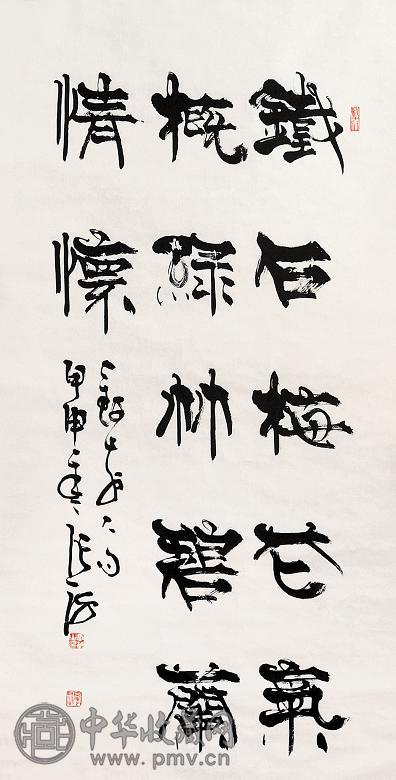 鐵石梅花氣
概綠竹碧蘭
情懷
甲申年張海
中华收藏网
www.pmv.cn